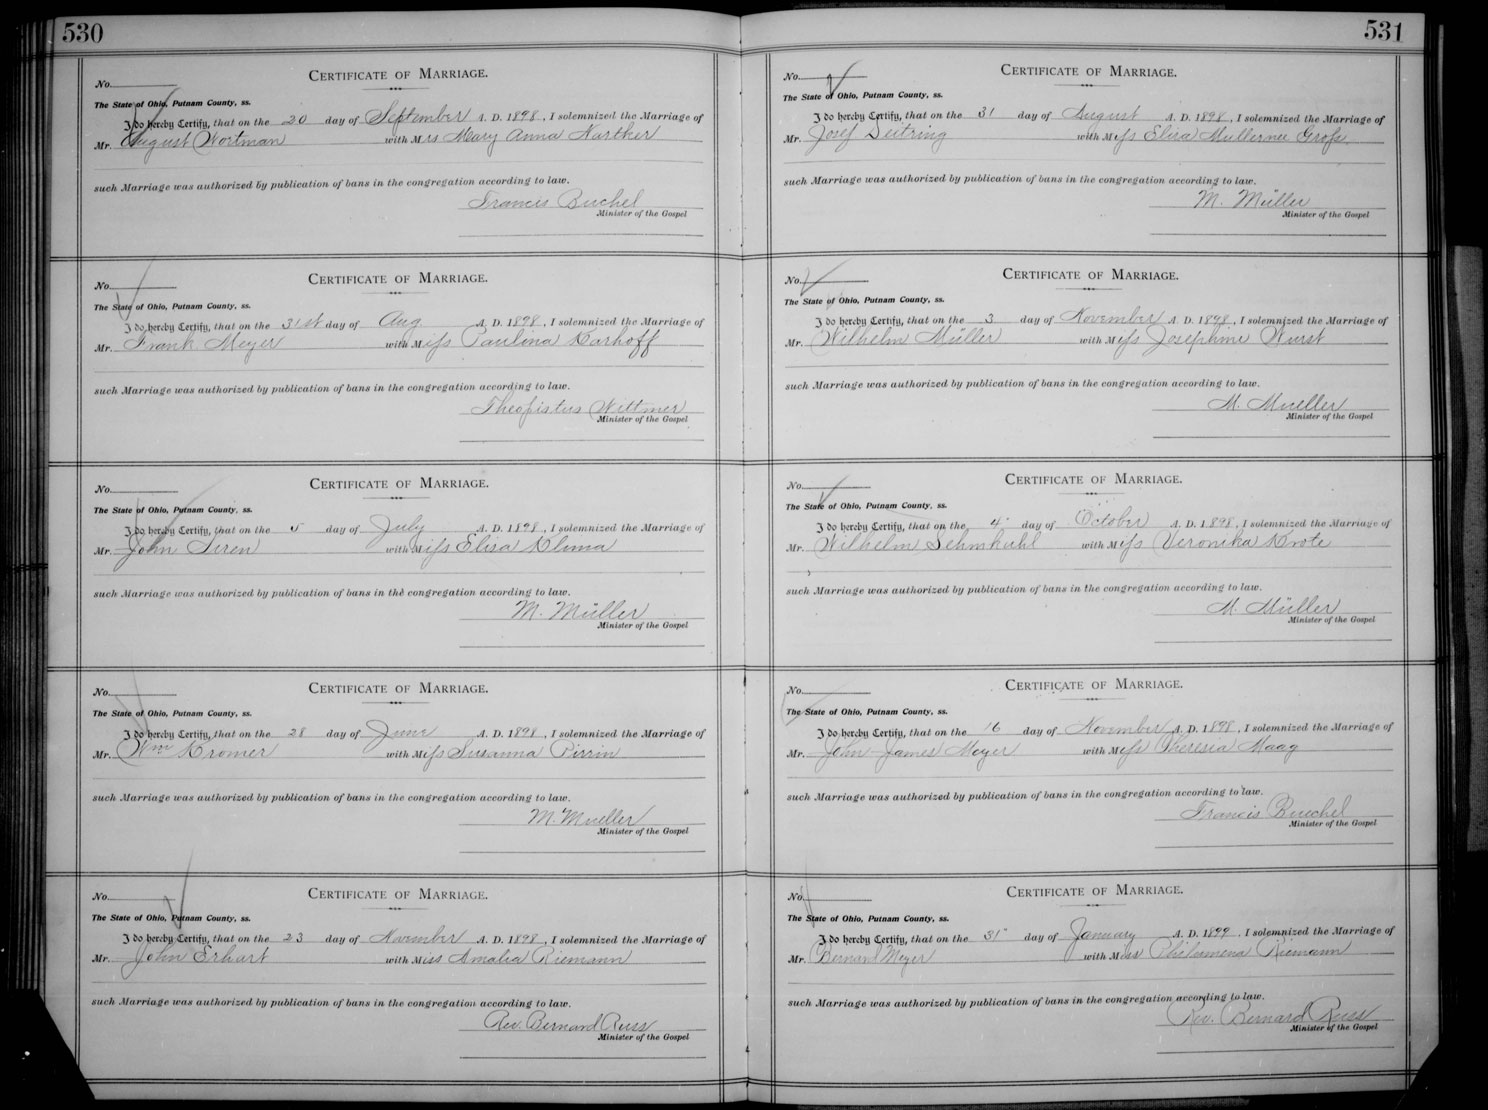 530
No.
CERTIFICATE OF MARRIAGE.
The State of Ohio, Putnam County, ss.
I do hereby Certify, that on the 20 day of September A. D. 1898, I solemnized the Marriage of
Mr. August Wortman with Miss Mary Anna Karther
such Marriage was authorized by publication of bans in the congregation according to law.
Francis Buchel
Minister of the Gospel
No.
CERTIFICATE OF MARRIAGE.
The State of Ohio, Putnam County, ss.
I do hereby Certify, that on the 31st day of Aug. A. D. 1898, I solemnized the Marriage of
Mr. Frank Meyer with Miss Paulina Karhoff
such Marriage was authorized by publication of bans in the congregation according to law.
Theopistus Wittmer
Minister of the Gospel
No.
CERTIFICATE OF MARRIAGE.
The State of Ohio, Putnam County, ss.
I do hereby Certify, that on the 5 day of July A. D. 1898, I solemnized the Marriage of
Mr. John Siren with Miss Elisa Klima
such Marriage was authorized by publication of bans in the congregation according to law.
M. Müller
Minister of the Gospel
No.
CERTIFICATE OF MARRIAGE.
The State of Ohio, Putnam County, ss.
I do hereby Certify, that on the 28 day of June A. D. 1898, I solemnized the Marriage of
Mr. Wm Kromer with Miss Susanna Pirrin
such Marriage was authorized by publication of bans in the congregation according to law.
M. Mueller
Minister of the Gospel
No.
CERTIFICATE OF MARRIAGE.
The State of Ohio, Putnam County, ss.
I do hereby Certify, that on the 23 day of November A. D. 1898, I solemnized the Marriage of
Mr. John Erhart with Miss Amalia Riemann
such Marriage was authorized by publication of bans in the congregation according to law.
Rev. Bernard Russ
Minister of the Gospel
531
No.
CERTIFICATE OF MARRIAGE.
The State of Ohio, Putnam County, ss.
I do hereby Certify, that on the 31 day of August A. D. 1898, I solemnized the Marriage of
Mr. Josef Deitring with Miss Elisa Muller nee Gross
such Marriage was authorized by publication of bans in the congregation according to law.
M. Müller
Minister of the Gospel
No.
CERTIFICATE OF MARRIAGE.
The State of Ohio, Putnam County, ss.
I do hereby Certify, that on the 3 day of November A. D. 1898, I solemnized the Marriage of
Mr. Wilhelm Müller with Miss Josephine Wurst
such Marriage was authorized by publication of bans in the congregation according to law.
M. Mueller
Minister of the Gospel
No.
CERTIFICATE OF MARRIAGE.
The State of Ohio, Putnam County, ss.
I do hereby Certify, that on the 4 day of October A. D. 1898, I solemnized the Marriage of
Mr. Wilhelm Schmkuhl with Miss Veronika Krote
such Marriage was authorized by publication of bans in the congregation according to law.
M. Müller
Minister of the Gospel
No.
CERTIFICATE OF MARRIAGE.
The State of Ohio, Putnam County, ss.
I do hereby Certify, that on the 16 day of November A. D. 1898, I solemnized the Marriage of
Mr. John James Meyer with Miss Theresia Maag
such Marriage was authorized by publication of bans in the congregation according to law.
Francis Buechel
Minister of the Gospel
No.
CERTIFICATE OF MARRIAGE.
The State of Ohio, Putnam County, ss.
I do hereby Certify, that on the 31" day of January A. D. 1899, I solemnized the Marriage of
Mr. Bernard Meyer with Miss Philumena Riemann
such Marriage was authorized by publication of bans in the congregation according to law.
Rev. Bernard Russ
Minister of the Gospel